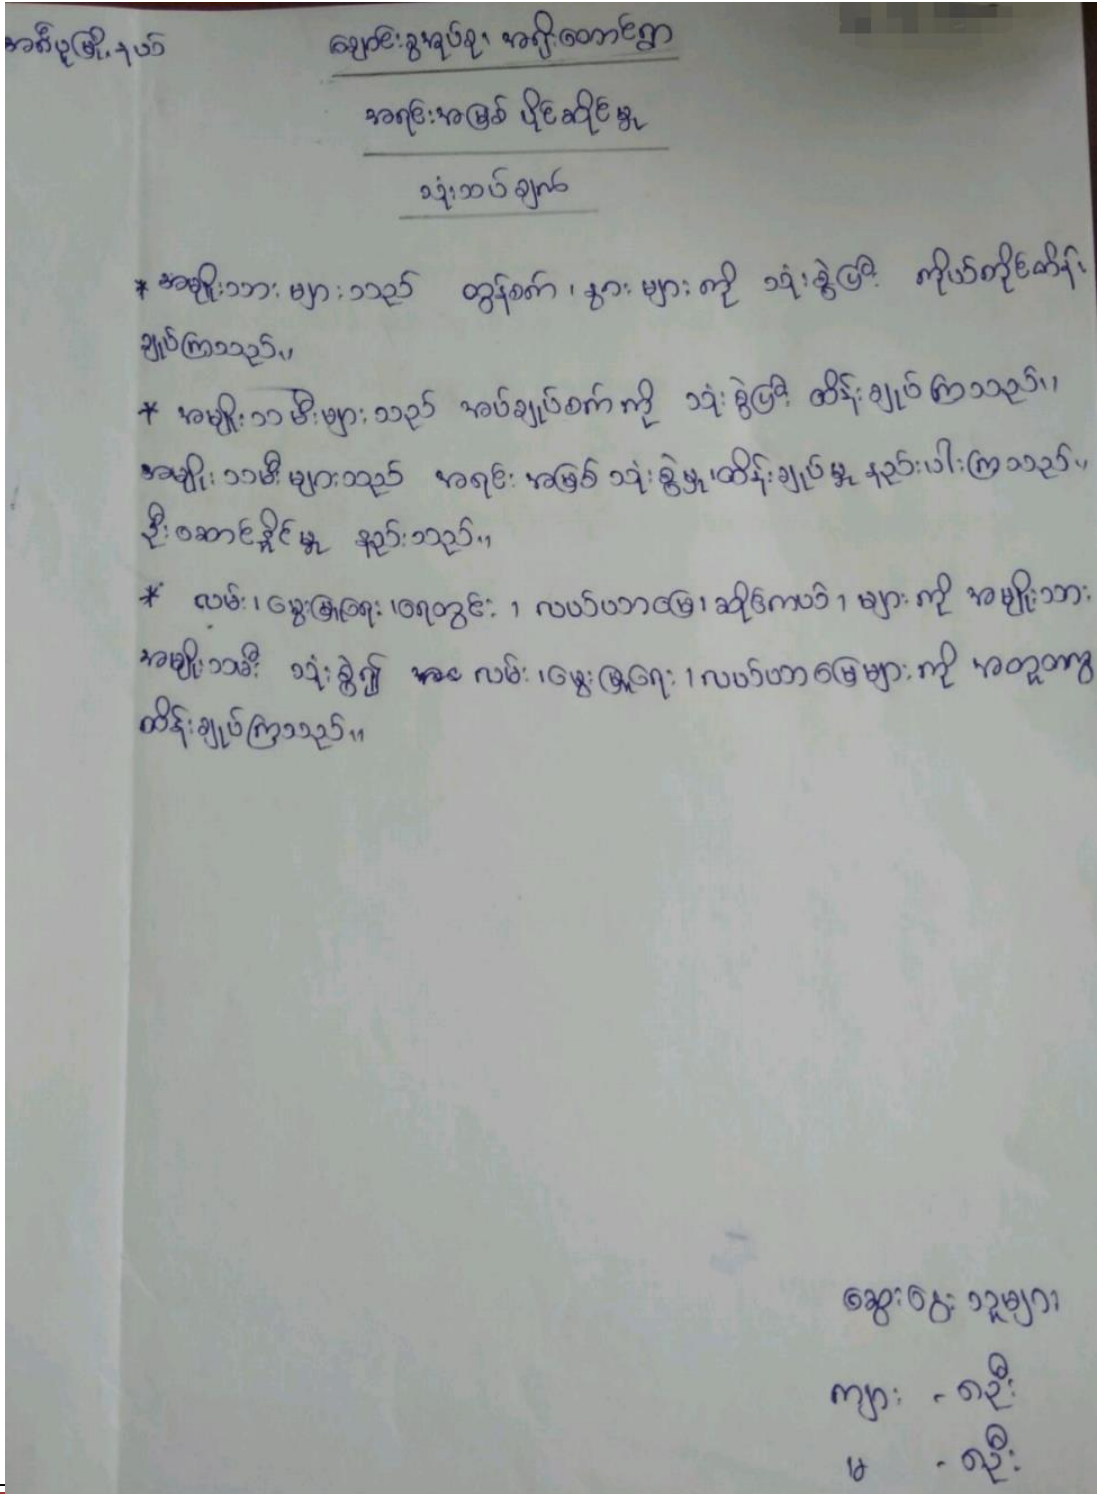 အင်္ဂပူမြို့နယ် ချောင်းခွအုပ်စု၊ အရိုးတောင်ရွာ
အရင်းအမြစ် ပိုင်ဆိုင်မှု
သုံးသပ်ချက်
* အမျိုးသားများသည် ထွန်စက်၊ နွားများကို သုံးစွဲပြီး ကိုယ်တိုင်ထိန်း
ချုပ်ကြသည်။
* အမျိုးသမီးများသည် အပ်ချုပ်စက်ကို သုံးစွဲပြီး ထိန်းချုပ်ကြသည်။
အမျိုးသမီးများသည် အရင်းအမြစ် သုံးစွဲမှု၊ ထိန်းချုပ်မှု နည်းပါးကြသည်။
ဦးဆောင်နိုင်မှု နည်းသည်။
* လမ်း၊ မွေးမြူရေး၊ ရေတွင်း၊ လယ်ယာမြေ၊ ဆိုင်ကယ်၊ များကို အမျိုးသား
အမျိုးသမီး သုံးစွဲ၍ လမ်း၊ မွေးမြူရေး၊ လယ်ယာမြေများကို အတူတကွ
ထိန်းချုပ်ကြသည်။
ဆွေးနွေးသူများ
ကျား - ၈ဦး
မ - ၈ဦး